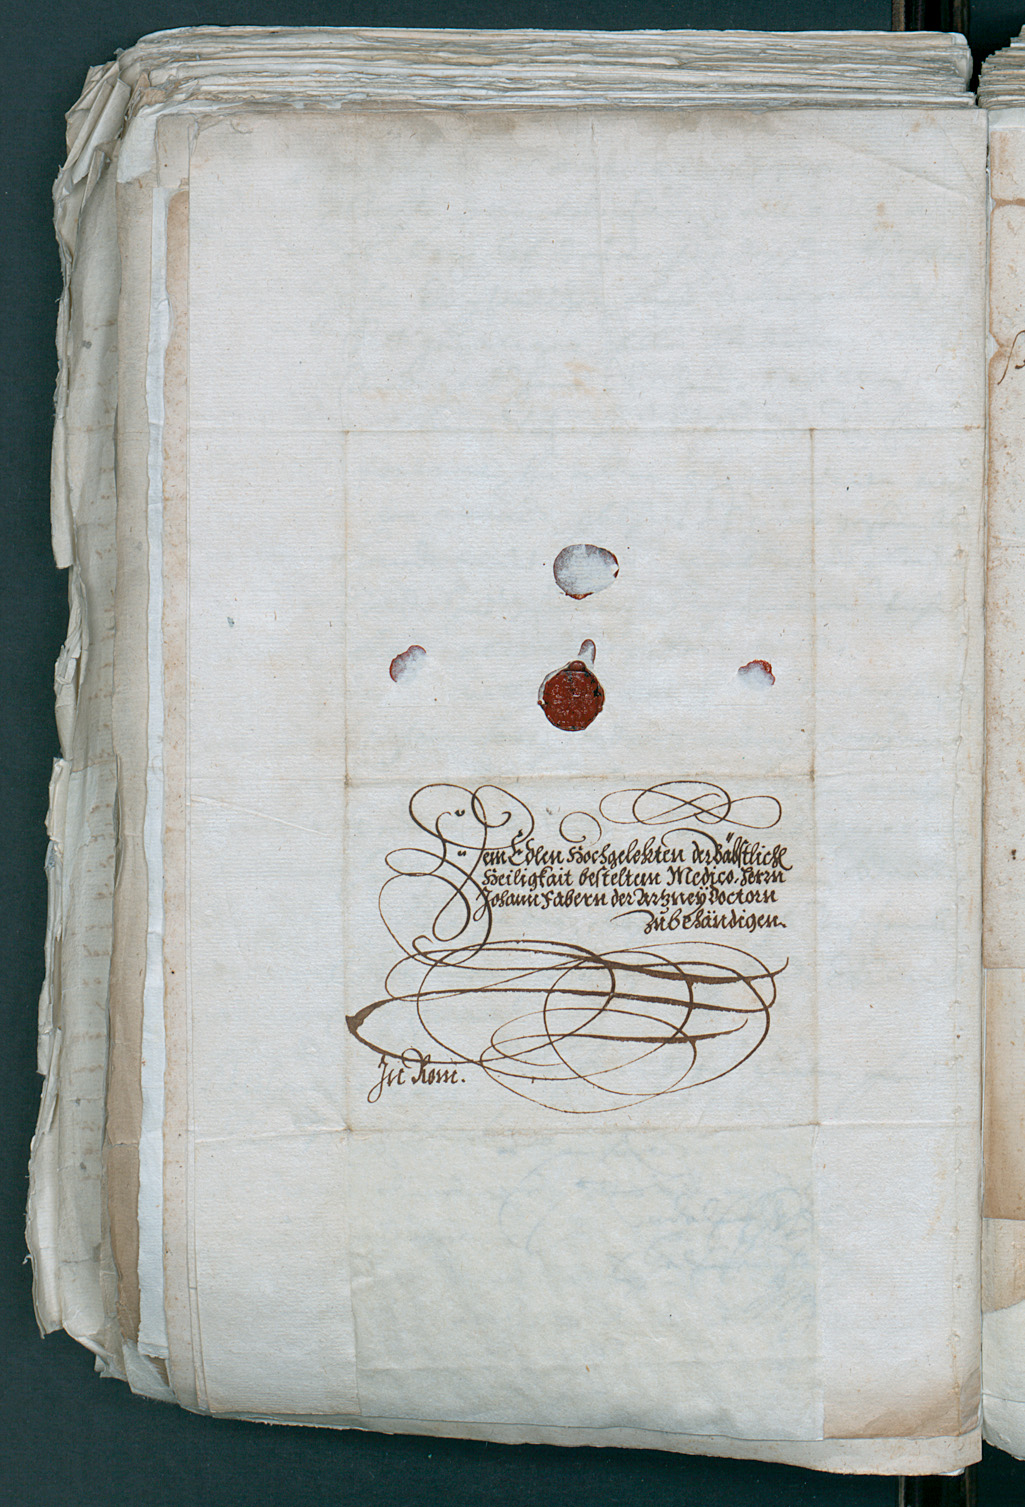 Dem Edlen Hochgelehrten der Bäbstlich
Heiligkait besteltem Medico. Herrn
Johann Fabern der Artzneÿ Doctorn
Zu behändigen.
In Rom.